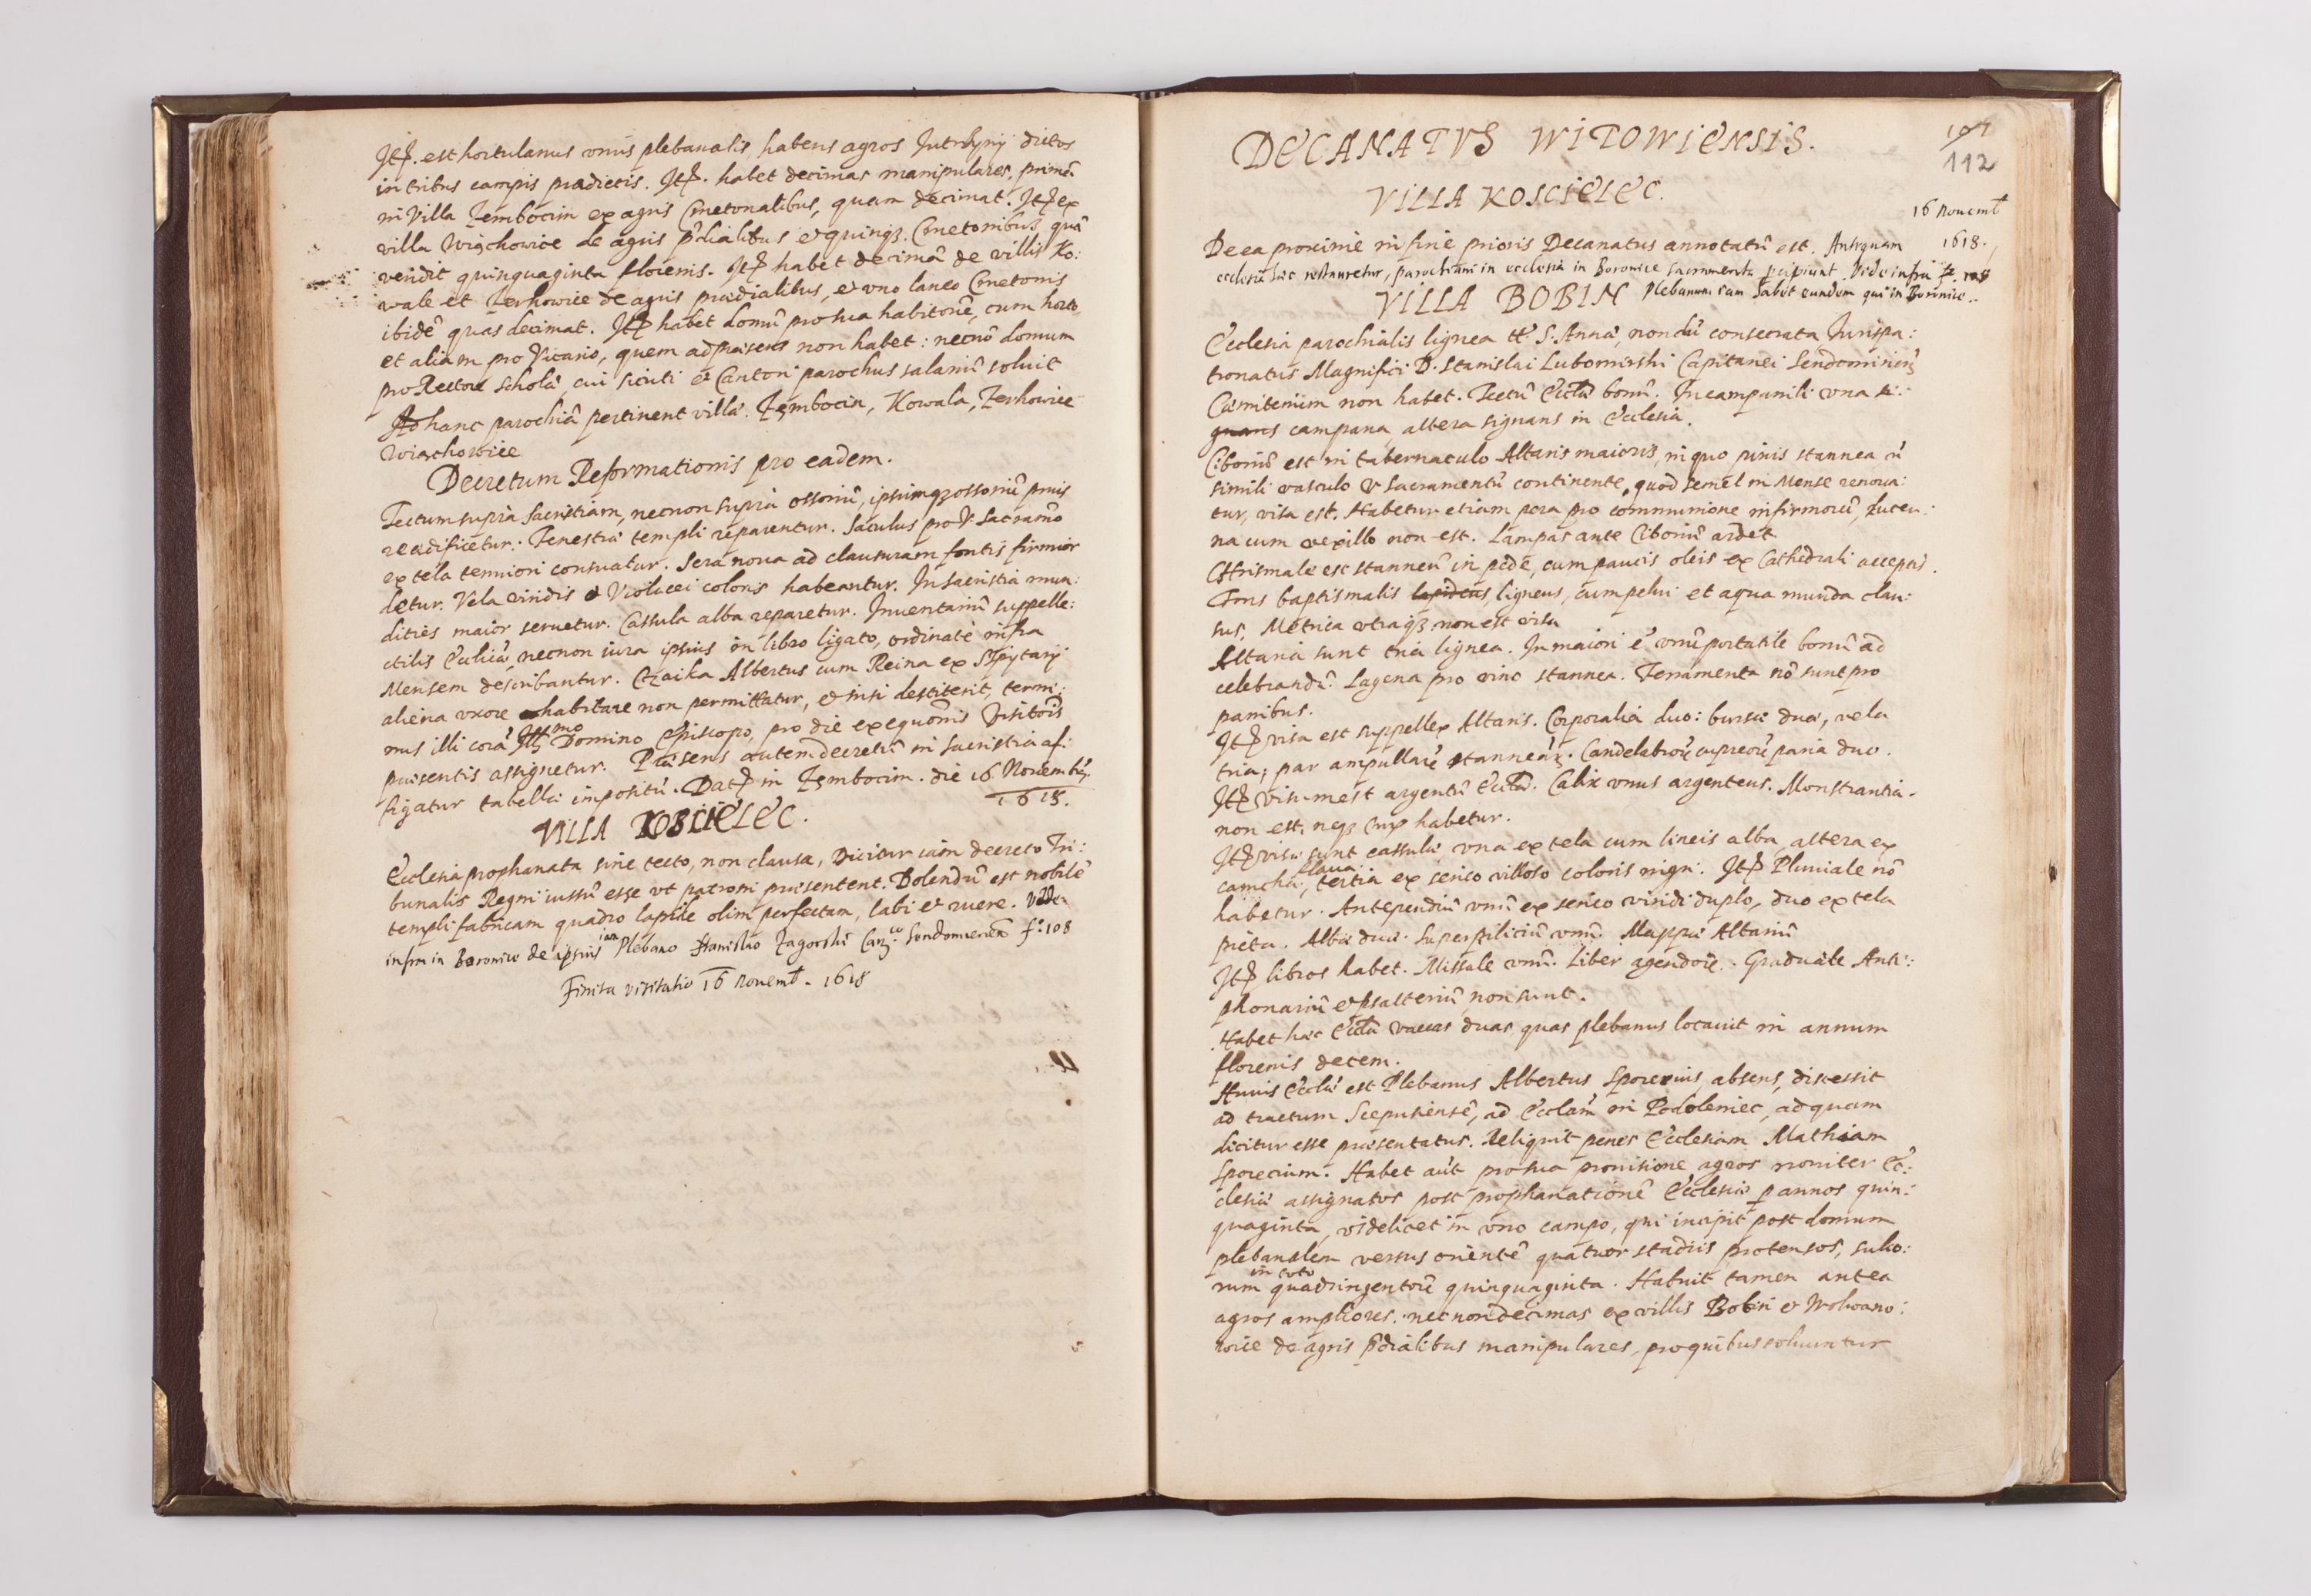 Itē. est hortulanus vnus plebanalis, habens agros dictos
in tribus campis prædictis. Itē. habet decimas manipulares, primā
in Villa Zembocin ex agris Cmetonalibus, quam decimat. Itē ex
villa Więchowice de agris p̄dialibus et quinq₃. Cmetonibus, quā
vendit quinquaginta florenis. Itē habet decimā de villis Ko:
wale et Zerkowice de agris prædialibus, et vno laneo Cmetonis
ibidē quas decimat. Itē habet domū pro sua habitōnē, cum horto
et aliam pro Vicario, quem ad præsens non habet: necnō domum
pro Rectore scholæ, cui sicuti et Cantori parochus salariū soluit
Ad hanc parochiā pertinent villæ. Zembocin, Kowala, Zerkowice
Więchowice
Decretum Reformationis pro eadem.
Tectum supra Sacristiam, necnon supra ossoriū, ipsumq₃ ossoriū prius
reædificetur. Fenestræ templi reparentur. Sacculus pro V. Sacramō
ex tela tenuiori consuatur. Sera noua ad clausuram fontis firmior
detur. Vela viridis et Violacei coloris habeantur. In sacristia mun:
dities maior seruetur. Cassula alba reparetur. Inuentariū suppelle:
ctilis Ecclīæ, necnon iura ipsius in libro ligato, ordinatè infra
Mensem describantur. Czaika Albertus cum Reina ex
aliena vxore habitare non permittatur, et nisi destiterit, termi:
nus illi corā Illmo Domino Episcopo, pro die exequōnis Visitōis
præsentis assignetur. Præsens autem decretū in sacristia af:
figatur tabellæ impositū. Datē in Zembocim. die 16 Nouembr.
1618.
VILLA KOSCIELEC.
Ecclesia prophanata sine tecto, non clausa, Dicitur iam decreto Tri:
bunalis Regni iussū esse vt patroni præsentent. Dolendū est nobilē
templi fabricam quadro lapide olim perfectam, labi et ruere. Vide
infra in Boronice de ipsius iam Plebano Stanislao Zagorski Can:co Sendomirien f: 108
Finita visitatio 16 Nouemb. 1618
DECANATVS WITOWIENSIS.
107
112
VILLA KOSCIELEC.
16 Nouemb
1618.
De ea proximè in fine prioris Decanatus annotatū est. Antequam
ecclesia hæc restauretur, parochiani in ecclesia in Boronice sacramenta p̄cipiunt. Vide infra f. 108
Plebanum eam habet eundem qui in Boronice.
VILLA BOBIN
Ecclesia parochialis lignea tt. S. Annæ, nondū consecrata, Iurispa:
tronatus Magnifici D. Stanislai Lubomirski Capitanei Sendomiriens
Cæmiterium non habet. Tectū Ecclīæ bonū. In campanili vna si:
gnans campana, altera signans in Ecclesia.
Ciboriū est in tabernaculo Altaris maioris, in quo pixis stannea cū
simili vasculo V Sacramentū continente, quod semel in Mense renoua:
tur, visa est. Habetur etiam pera pro communione infirmorū, Lucer:
na cum vexillo non est. Lampas ante Ciboriū ardet
Chrismale est stanneū in pede, cum paucis oleis ex Cathedrali acceptis.
Fons baptismalis lapideus, ligneus, cum pelui et aqua munda clau:
sus. Metrica vtraq₃ non est visa
Altaria sunt tria lignea. In maiori ē vnū portatile bonū ad
celebrandū. Lagena pro vino stannea. Ferramenta nō sunt pro
panibus.
Itē visa est suppellex Altaris. Corporalia duo: bursæ duæ, vela
tria, par ampullarū stannear₃. Candelabrorū cupreorū paria duo.
Itē visum est argentū Ecclīæ. Calix vnus argenteus. Monstrantia.
non est, neq₃ Crux habetur.
Itē visæ sunt cassulæ, vna ex tela cum lineis alba, altera ex
camcha, flaua tertia ex serico villoso coloris nigri. Itē Pluuiale nō
habetur. Antependiū vnū ex serico viridi duplo, duo ex tela
picta. Albæ duæ. Superpiliciū vnū. Mappæ Altariū
Itē libros habet. Missale vnū. Liber agendorū. Graduale Anti:
phonariū et psalteriū, non sunt.
Habet hæc Ecclīa vaccas duas, quas plebanus locauit in annum
florenis decem.
Huius Ecclīæ est Plebanus Albertus Sporecius, absens, discessit
ad tractum Scepusiensē, ad Ecclīam in Podoleniec, ad quam
dicitur esse præsentatus. Reliquit penes Ecclesiam Mathiam
Sporecium. Habet aūt pro sua prouisione agros nouiter Ec:
clesiæ assignatos post prophanationē Ecclesiæ p annos quin:
quaginta, videlicet in vno campo, qui incipit post domum
plebanalem versus orientē quatuor stadiis protensos, sulco:
rum in toto quadringentorū quinquaginta. Habuit tamen antea
agros ampliores, necnon decimas ex villis Bobin et Wolwano:
wice de agris p̄dialibus manipulares, pro quibus soluuntur